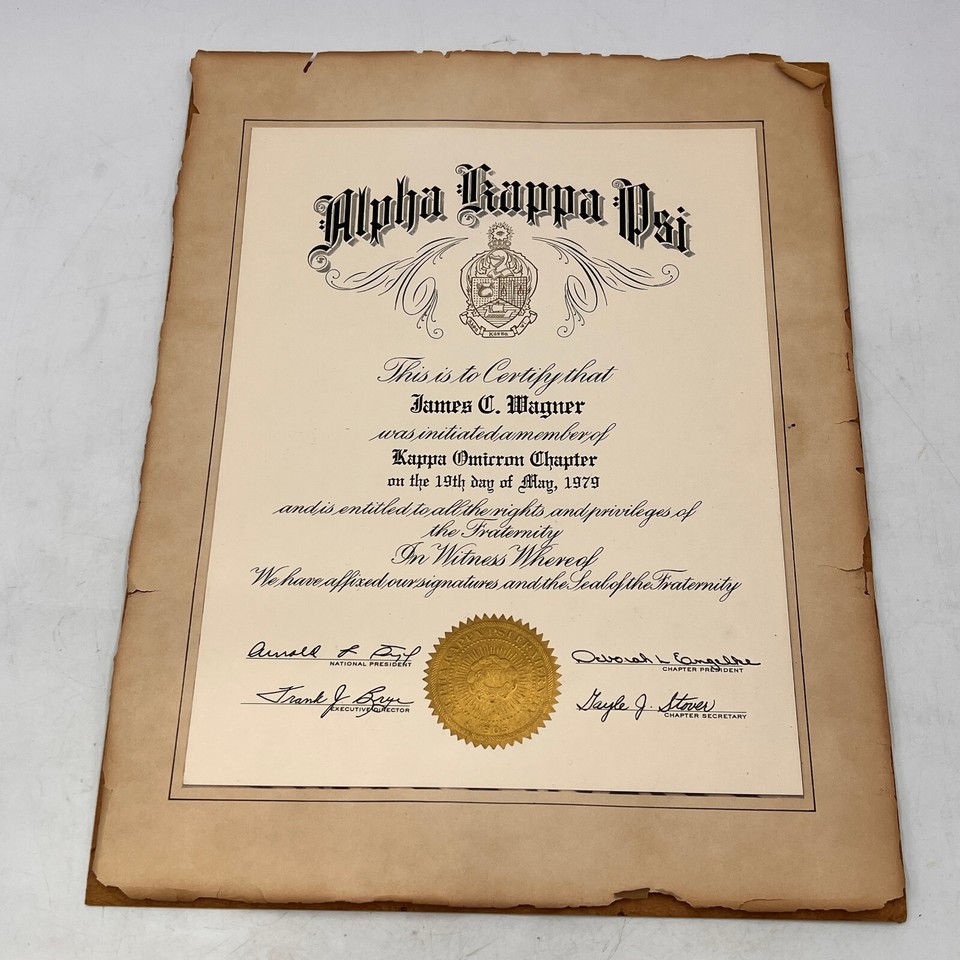 Alpha Kappa Psi
This is to Certify that
James C. Wagner
was initiated a member of
Kappa Omicron Chapter
on the 19th day of May, 1979
and is entitled to all the rights and privileges of
the Fraternity
In Witness Whereof
We have affixed our signatures and the Seal of the Fraternity
Arnold
NATIONAL PRESIDENT
Deborah L Engelke
CHAPTER PRESIDENT
Frank J. Brye
EXECUTIVE DIRECTOR
Gayle J. Stover
CHAPTER SECRETARY